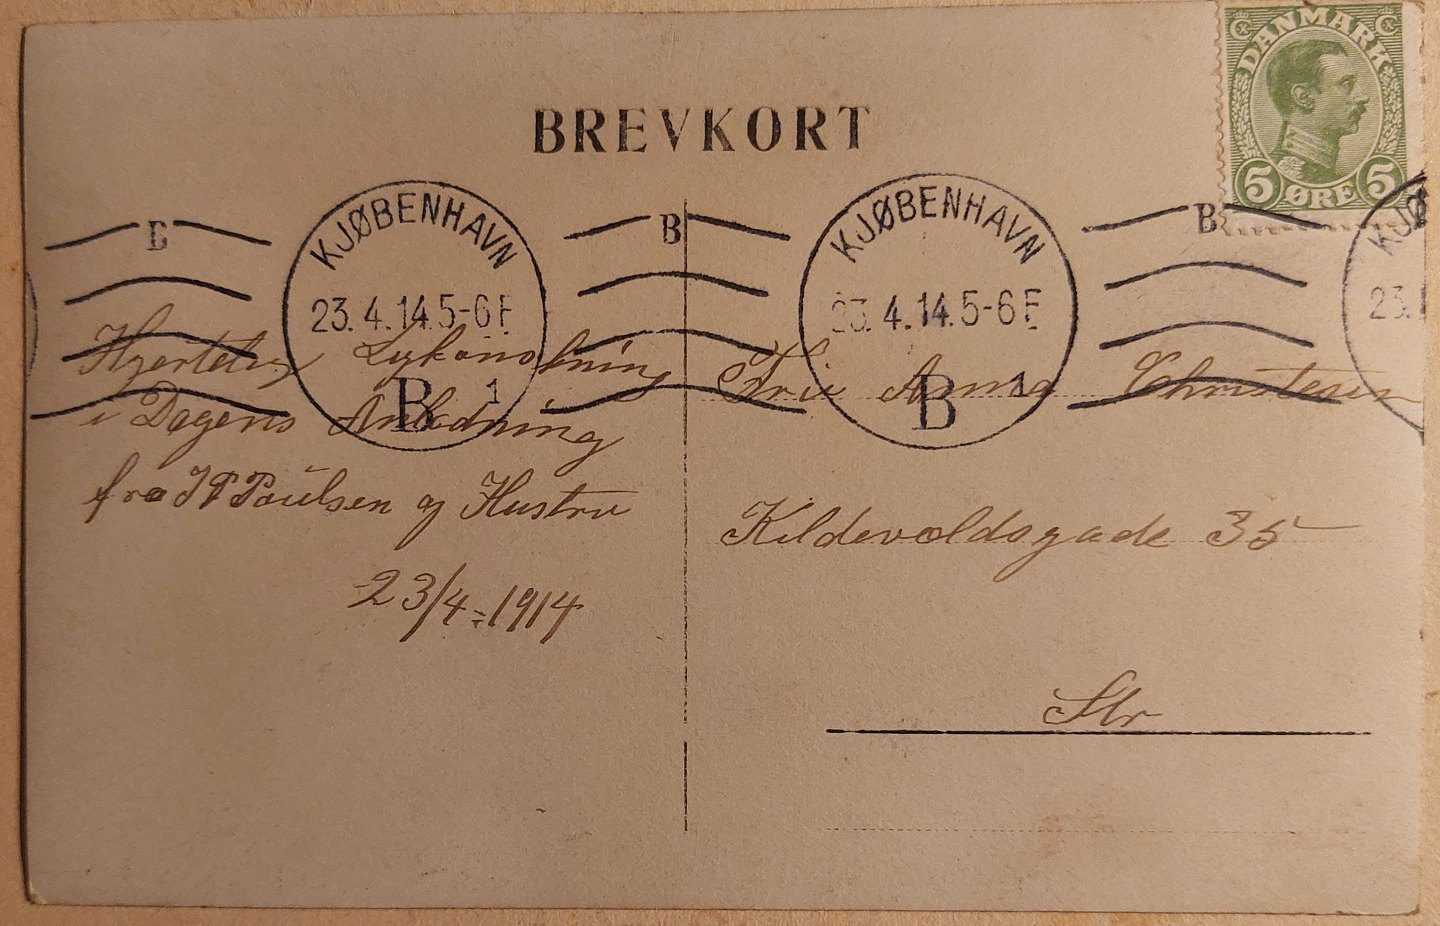 BREVKORT
DANMARK
5 ØRE 5
B B B
KJØBENHAVN
23.4.14.5-6 F
B 1
KJØBENHAVN
23.4.14.5-6 F
B 1
KJØ
23.1
Hjertelig Lykønskning
i Dagens Anledning
fra Poulsen og Hustru
23/4 = 1914
Anna Christensen
Kildevældsgade 35